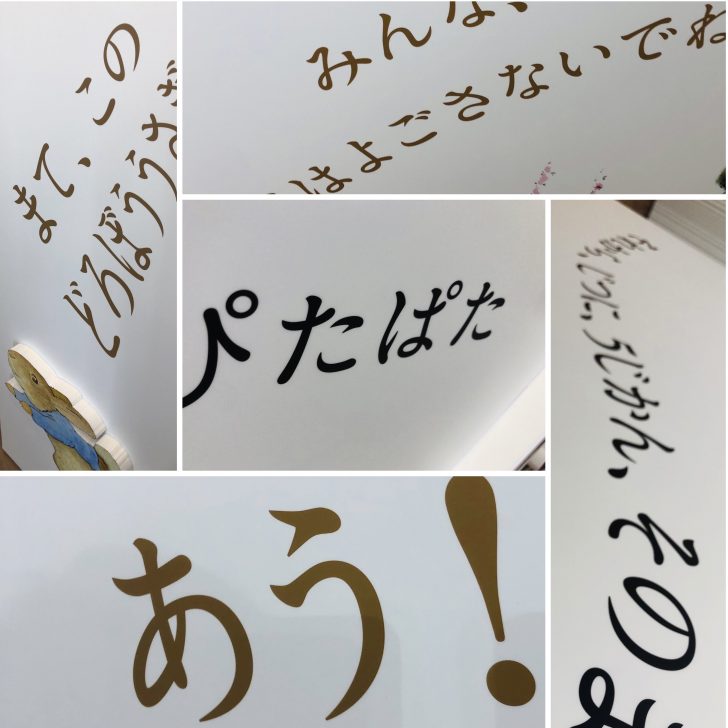 まて、この
どろぼううさぎ
みんな、
はよごさないでね
ぺたぱた
じつに、5じかん、その
あう!